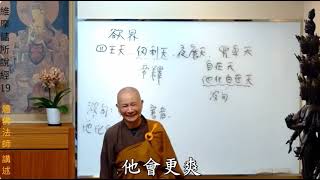 維摩詰所說經19
體佛法師 講述
欲界
四王天 忉利天 夜摩天 兜率天
帝釋
自在天
他化自在天
波旬
波旬
他會更爽